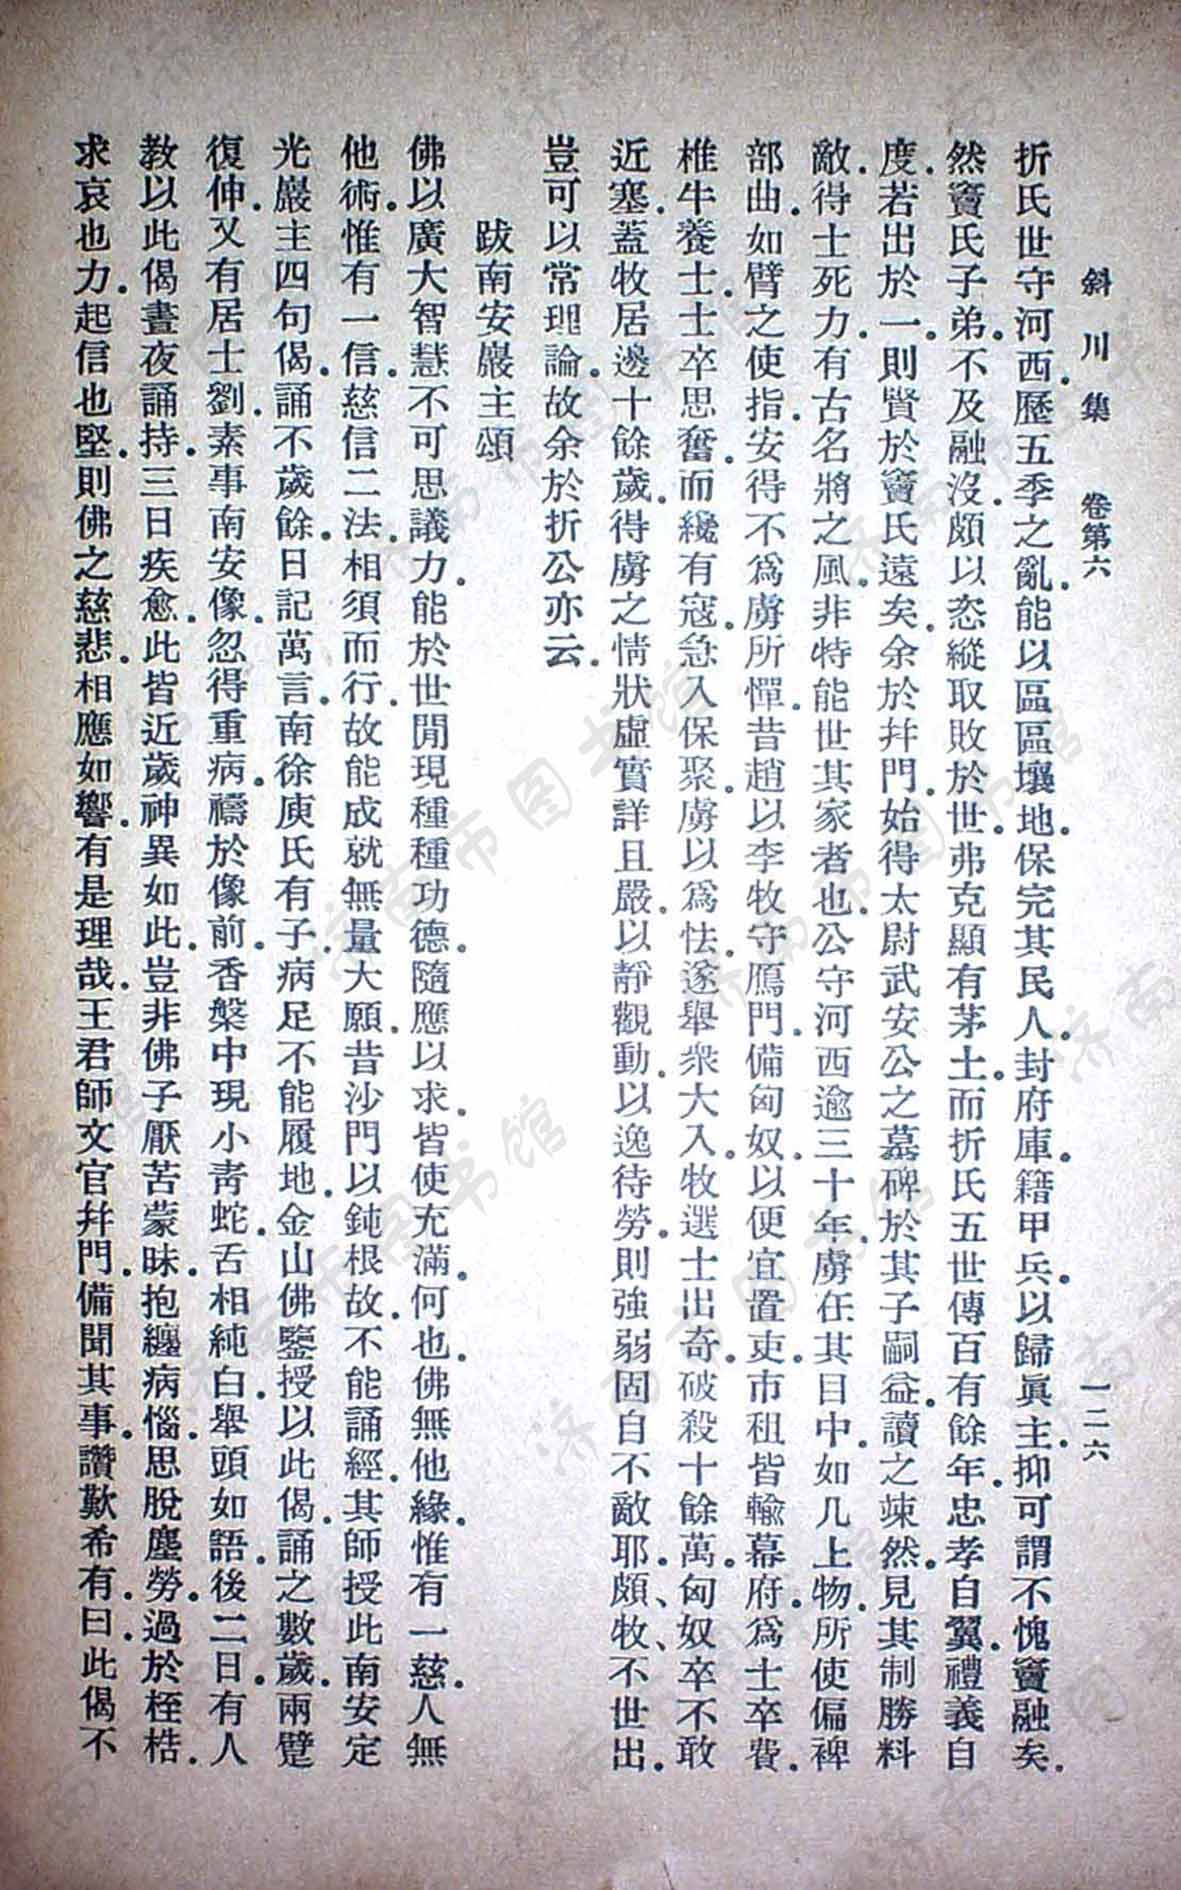 斜川集　卷第六　一二六
折氏世守河西.歷五季之亂.能以區區壤地.保完其民人.封府庫.籍甲兵.以歸眞主.抑可謂不愧竇融矣.
然竇氏子弟.不及融沒.頗以恣縱取敗於世.弗克顯有茅土.而折氏五世傳百有餘年.忠孝自翼.禮義自
度.若出於一.則賢於竇氏遠矣.余於幷門.始得太尉武安公之墓碑於其子嗣益.讀之竦然.見其制勝料
敵.得士死力.有古名將之風.非特能世其家者也.公守河西逾三十年.虜在其目中.如几上物.所使偏裨
部曲.如臂之使指.安得不爲虜所憚.昔趙以李牧守鴈門.備匈奴.以便宜置吏.市租皆輸幕府.爲士卒費.
椎牛養士.士卒思奮.而纔有寇.急入保聚.虜以爲怯.遂舉衆大入.牧選士出奇.破殺十餘萬.匈奴卒不敢
近塞.蓋牧居邊十餘歲.得虜之情狀虛實詳且嚴.以靜觀動.以逸待勞.則強弱固自不敵耶.頗、牧、不世出.
豈可以常理論.故余於折公亦云.
跋南安巖主頌
佛以廣大智慧不可思議力.能於世閒現種種功德.隨應以求.皆使充滿.何也.佛無他緣.惟有一慈.人無
他術.惟有一信.慈信二法.相須而行.故能成就無量大願.昔沙門以鈍根故.不能誦經.其師授此南安定
光巖主四句偈.誦不歲餘.日記萬言.南徐庾氏有子.病足不能履地.金山佛鑒授以此偈.誦之數歲.兩躄
復伸.又有居士劉.素事南安像.忽得重病.禱於像前.香槃中現小靑蛇.舌相純白.舉頭如語.後二日.有人
敎以此偈晝夜誦持.三日疾愈.此皆近歲神異如此.豈非佛子厭苦蒙昧.抱纏病惱.思脫塵勞.過於桎梏.
求哀也力.起信也堅.則佛之慈悲.相應如響.有是理哉.王君師文官幷門.備聞其事.讚歎希有.曰.此偈不